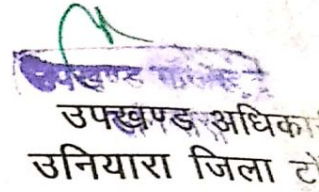 उपखण्ड अधिका
उनियारा जिला टो